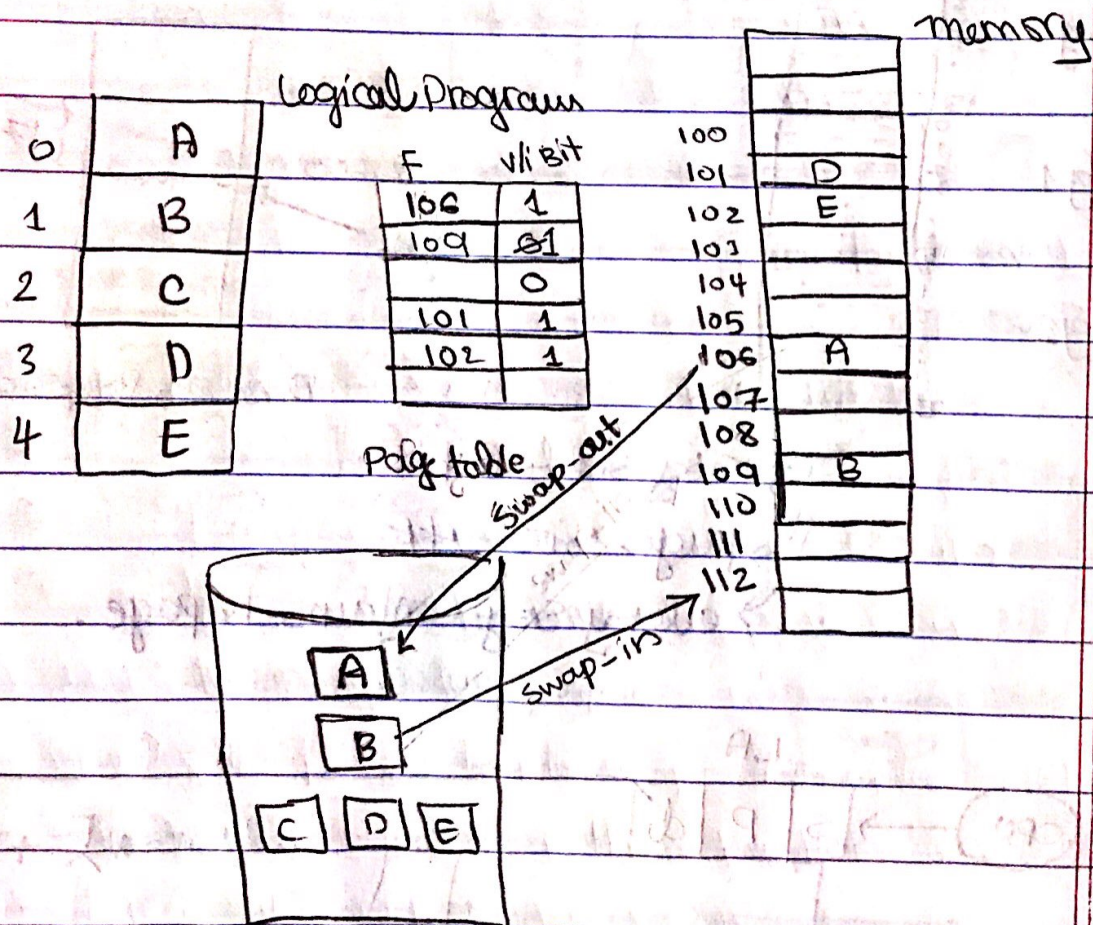 memory
Logical Program
0 A
1 B
2 C
3 D
4 E
F V/i Bit
106 1
109 1
0
101 1
102 1
Page table
100
101 D
102 E
103
104
105
106 A
107
108
109 B
110
111
112
Swap-out
Swap-in
A
B
C D E
CPU P d